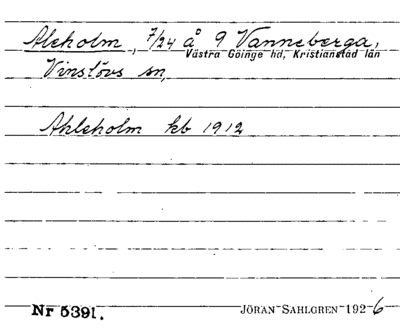 Aleholm, 7/24 å 9 Vanneberga,
Västra Göinge hd, Kristianstad län
Vinslövs sn,
Ahleholm kb 1912
Nr 5391. JÖRAN SAHLGREN 1926